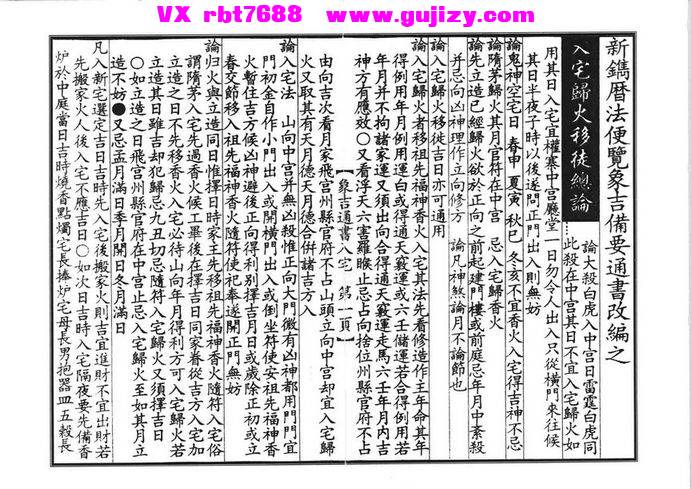 VX rbt7688  www.gujizy.com
新鐫曆法便覽象吉備要通書改編之
入宅歸火移徙總論
論大殺白虎入中宮日雷霆白虎同
此殺在中宮其日不宜入宅歸火如
用其日入宅宜權塞中宮廳堂一日勿令人出入只從橫門來往候
其日半夜子時以後遂開正門出入則無妨
論鬼神空宅日 春申 夏寅 秋巳 冬亥不宜香火入宅得吉神不忌
論隋茅歸火其月官符在中宮 忌入宅歸香火
論先立造已經歸火欲於正向之前起建門樓或前庭忌年月中紊殺
并忌向凶神理作立向修方 論凡神煞論月不論節也
論入宅歸火移徙吉日亦可通用
論入宅歸火者移祖先福神香火入宅其法先看修造作主年命其年
得例用年月例用運白或得通天竅運或六壬儲運若合得例用若
年月并不拘諸家運又須出向合得通天竅運走馬六壬年月內吉
神方有應效○又看浮天六害羅睺止忌占向捨位州縣官府不占
【象吉通書入宅 第一頁】
由向吉次看月家飛宮州縣官府不占山頭立向中宮却宜入宅歸
火又取其有天月德天月德合併諸吉方入
論入宅法 山向中宮并無凶殺惟正向大門微有凶神都用門門宜
門初金自作小門出入或開橫門出入或倒坐符使安祖先福神香
火暫住吉方候凶神避後正向得利別擇吉月日或歲除正初或立
春交節移入祖先福神香火隨符使祀奉遂開正門無妨
論归火與立造同日惟擇日時家主先移祖先福神香火隨符入宅俗
謂隋茅入宅先過香火候工畢後在擇吉日同家眷從吉方入宅加
立造之日不先移香火入宅必待山向年月得利方可入宅歸火若
立造其日雖吉却犯歸忌九丑切忌隨符入宅歸火又須擇吉日
○如立造之日飛宮州縣官府在中宮止忌入宅歸火至如其月立
造不妨●又忌孟月滿日季月開日冬月滿日
凡入新宅選定吉日吉時先入宅後搬家火則吉宜進財不宜出財若
先搬家火人後入宅不應吉日○如次日吉時入宅隔夜要先備香
炉於中庭當日吉時燒香點燭宅長捧炉宅母長男抱器皿五穀長